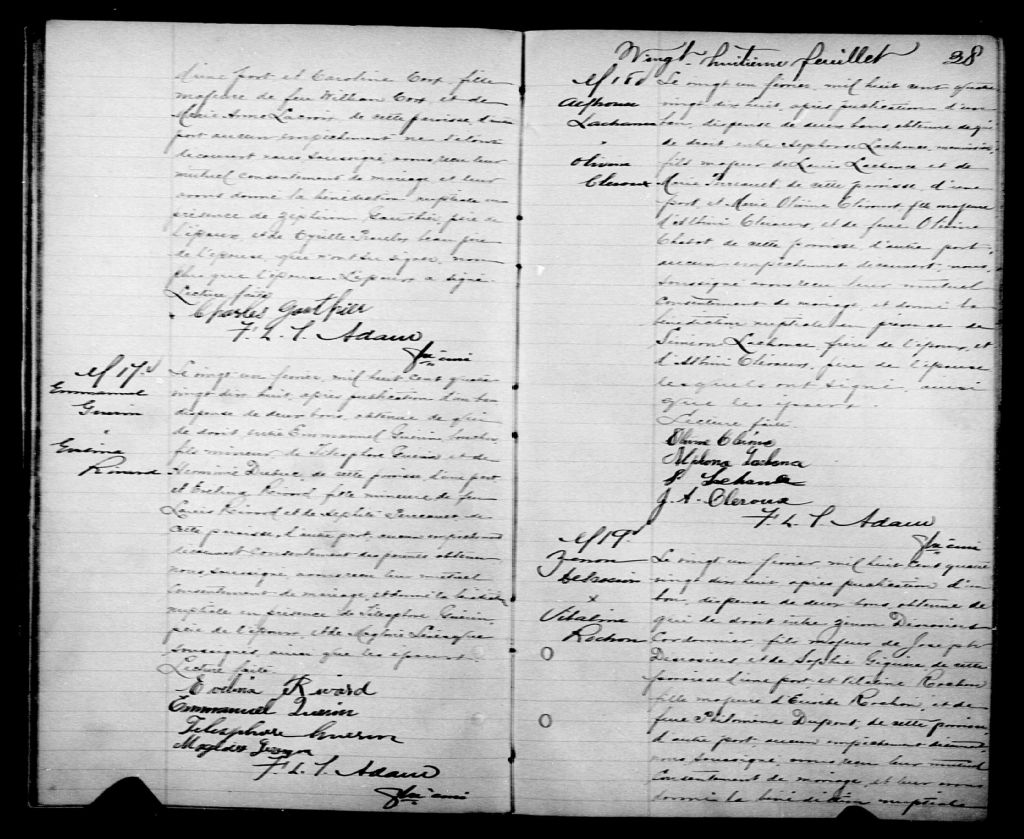 d'une part, et Caroline Cox, fille
majeure de feu William Cox et de
Marie Anne Lacroix de cette paroisse, d'autre
part aucun empêchement ne s'étant
découvert nous soussigné, avons reçu leur
mutuel consentement de mariage et leur
avons donné la bénédiction nuptiale en
présence de Zéphirin Gauthier, père de
l'époux, et de Cyrille beau père
de l'épouse, qui n'ont su signer, non
plus que l'épouse. L'époux a signé.
Lecture faite.
Charles Gauthier
F. L. T. Adam
Ptre curé
M 17e
Emmanuel
Guérin
&
Evelina
Rivard
Le vingt un février, mil huit cent quatre
vingt dix huit, après publication d'un ban
dispense de deux bans, obtenue de qui
de droit, entre Emmanuel Guérin
fils mineur de Télesphore Guérin et de
Herminie Dubuc de cette paroisse d'une part
et Evelina Rivard fille mineure de feu
Louis Rivard et de de
cette paroisse, d'autre part, aucun empêchement
découvert consentement des parents obtenu
nous, soussigné, avons reçu leur mutuel
consentement de mariage, et donné la bénédiction
nuptiale en présence de Télesphore Guérin,
père de l'époux, et de
soussignés, ainsi que les époux.
Lecture faite.
Evelina Rivard
Emmanuel Guerin
Telesphore Guerin
F. L. T. Adam
Ptre curé
Vingt-huitième feuillet 38
M 18e
Alphonse
Lachance
&
Olivina
Cleroux
Le vingt un février, mil huit cent quatre
vingt dix huit, après publication d'un
ban, dispense de deux bans, obtenue de qui
de droit entre Alphonse Lachance, menuisier,
fils majeur de Louis Lachance et de
Marie de cette paroisse, d'une
part, et Marie Olivine Cleroux fille majeure
d'Albini Cleroux, et de feue Olivine
Chabot de cette paroisse d'autre part,
aucun empêchement découvert, nous,
soussigné avons reçu leur mutuel
consentement de mariage, et donné la
bénédiction nuptiale en présence de
Siméon Lachance, frère de l'époux, et
d'Albini Cleroux, père de l'épouse
lesquels ont signé, ainsi
que les époux.
Lecture faite.
S. Lachance
J. A. Cleroux
F. L. T. Adam
Ptre curé
M 19e
Zénon
x
Vitaline
Rochon
Le vingt un février mil huit cent quatre
vingt dix huit après publication d'un
ban, dispense de deux bans, obtenue de
qui de droit entre Zénon Desrosiers
Cordonnier, fils majeur de Joseph
Desrosiers et de Sophie Giguère, de cette
paroisse d'une part et Vitaline Rochon
fille majeure d'Eusèbe Rochon, et de
feue Philomène Dupont, de cette paroisse
d'autre part, aucun empêchement découvert,
nous soussigné, avons reçu leur mutuel
consentement de mariage, et leur avons
donné la bénédiction nuptiale